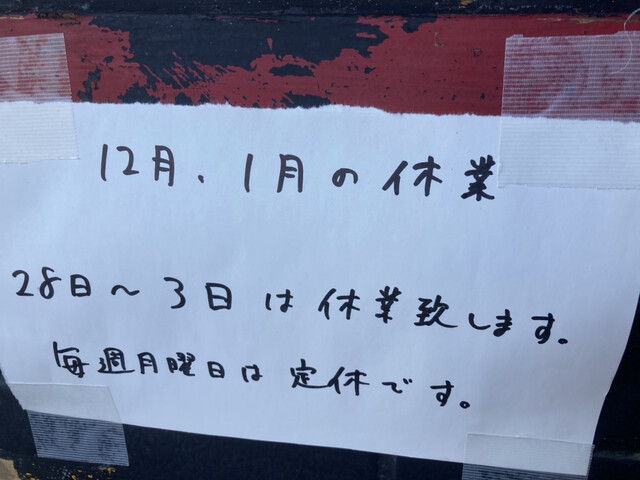 12月、1月の休業
28日〜3日は休業致します。
毎週月曜日は定休です。